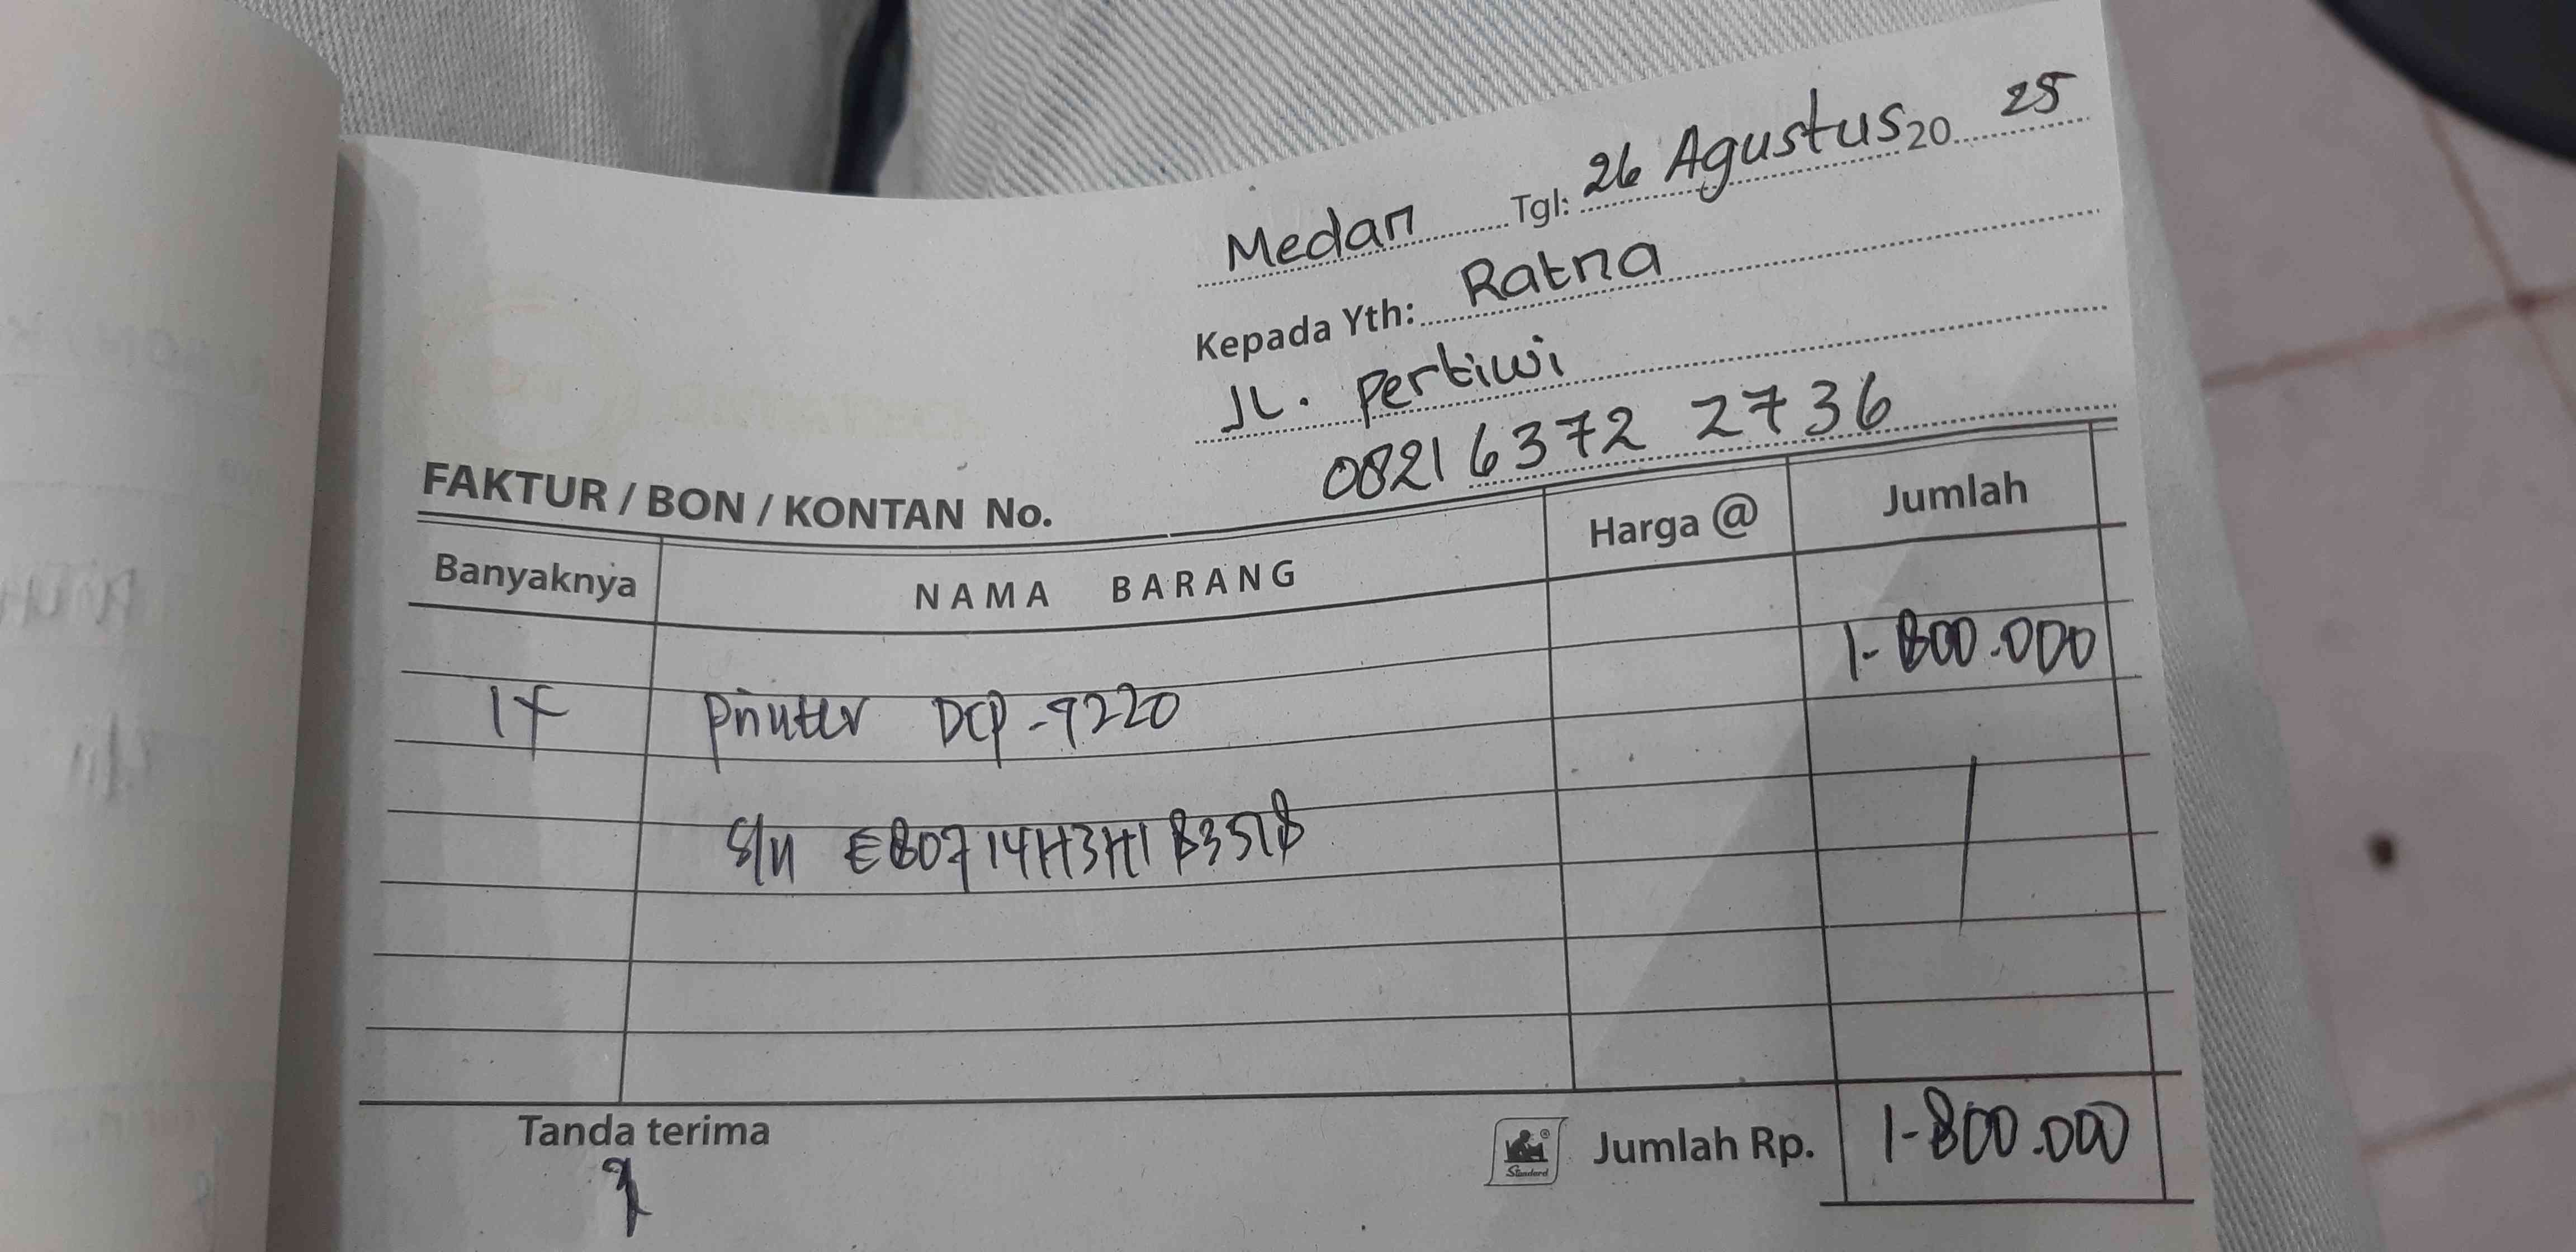 Medan Tgl: 26 Agustus 20 25
Kepada Yth: Ratna
JL. Pertiwi
0821 6372 2736
FAKTUR / BON / KONTAN No.
Banyaknya NAMA BARANG Harga @ Jumlah
1.800.000
1x Printer DCP-T220
S/N E80714H3H1B3518
Tanda terima
Standard
Jumlah Rp. 1.800.000